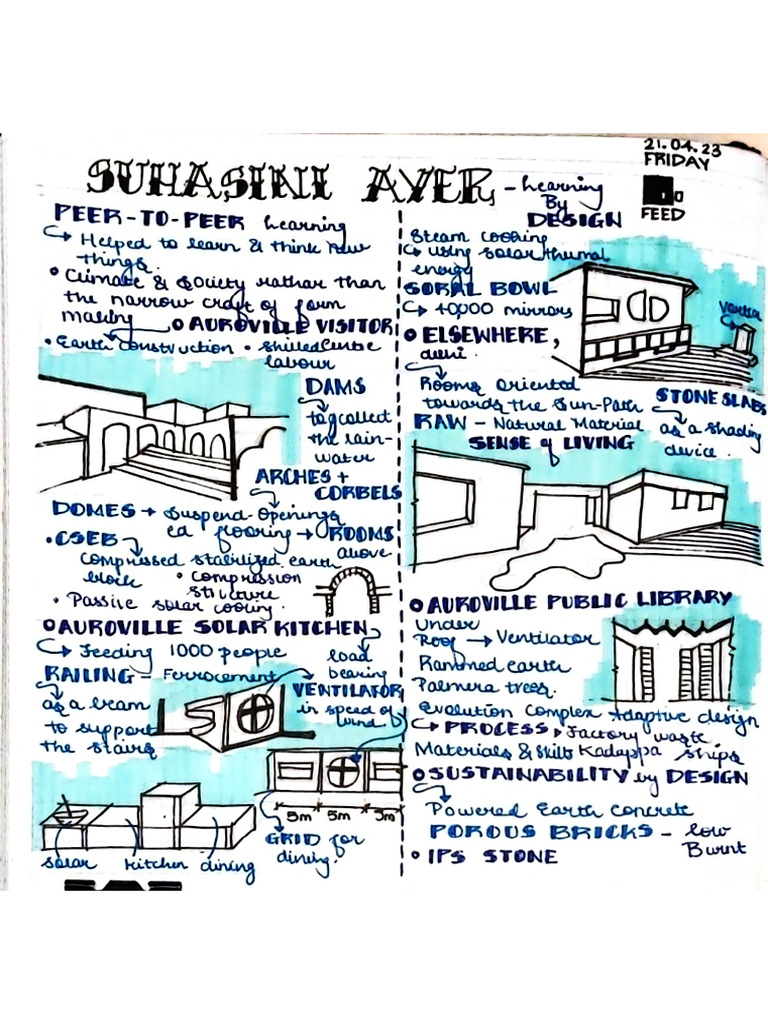 21.04.23
FRIDAY
FEED
SUHASINI AYER - Learning
By
DESIGN
PEER-TO-PEER Learning
Helped to learn & think new
things.
Climate & Society rather than
the narrow craft of form
making
AUROVILLE VISITOR
Centre
Earth construction • Skilled
labour
DAMS
to collect
the rain-
water
ARCHES +
CORBELS
DOMES → Suspend-Openings
ed flooring → ROOMS
above
• CSEB
Compressed stabilized earth
block • Compression
structure
• Passive solar cooling.
AUROVILLE SOLAR KITCHEN
Feeding 1000 people
load
bearing
RAILING - Ferrocement
as a beam
to support
the stairs
VENTILATOR
in speed of
wind
5m 5m 5m
GRID for
dining.
solar kitchen dining
Steam cooking
using solar thumal
energy
SORAL BOWL
40000 mirrors
ELSEWHERE,
delhi.
Rooms Oriented
towards the Sun-Path
STONE SLABS
as a shading
device.
RAW - Natural Material
SENSE of LIVING
AUROVILLE PUBLIC LIBRARY
Under
Roof → Ventilator
Rammed earth
Palmera trees.
Evolution Complex Adaptive design
PROCESS Factory waste
Materials & Skills Kadappa ships
SUSTAINABILITY by DESIGN
Powered Earth Concrete
POROUS BRICKS - low
Burnt
IPS STONE